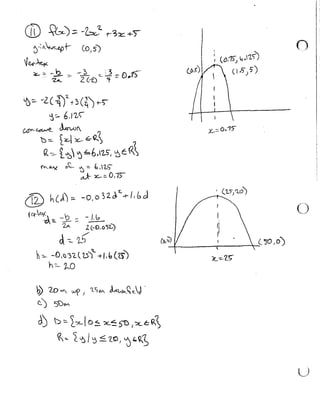 ⑪ f(x) = -2x² + 3x + 5
y-intercept (0,5)
Vertex
x = -b/2a = -3/2(-2) = 3/4 = 0.75
y = -2(3/4)² + 3(3/4) + 5
y = 6.125
concave down
D = {x/x ∈ R}
R = {y/y ≤ 6.125, y ∈ R}
max of y = 6.125
at x = 0.75
(0.75, 6.125)
(0,5)
(1.5, 5)
x = 0.75
⑫ h(d) = -0.032d² + 1.6d
vertex
d = -b/2a = -1.6/2(-0.032)
d = 25
h = -0.032(25)² + 1.6(25)
h = 20
(25,20)
(0,0)
(50,0)
x = 25
b) 20m up, 25m downfield
c) 50m
d) D = {x/0 ≤ x ≤ 50, x ∈ R}
R = {y/y ≤ 20, y ∈ R}